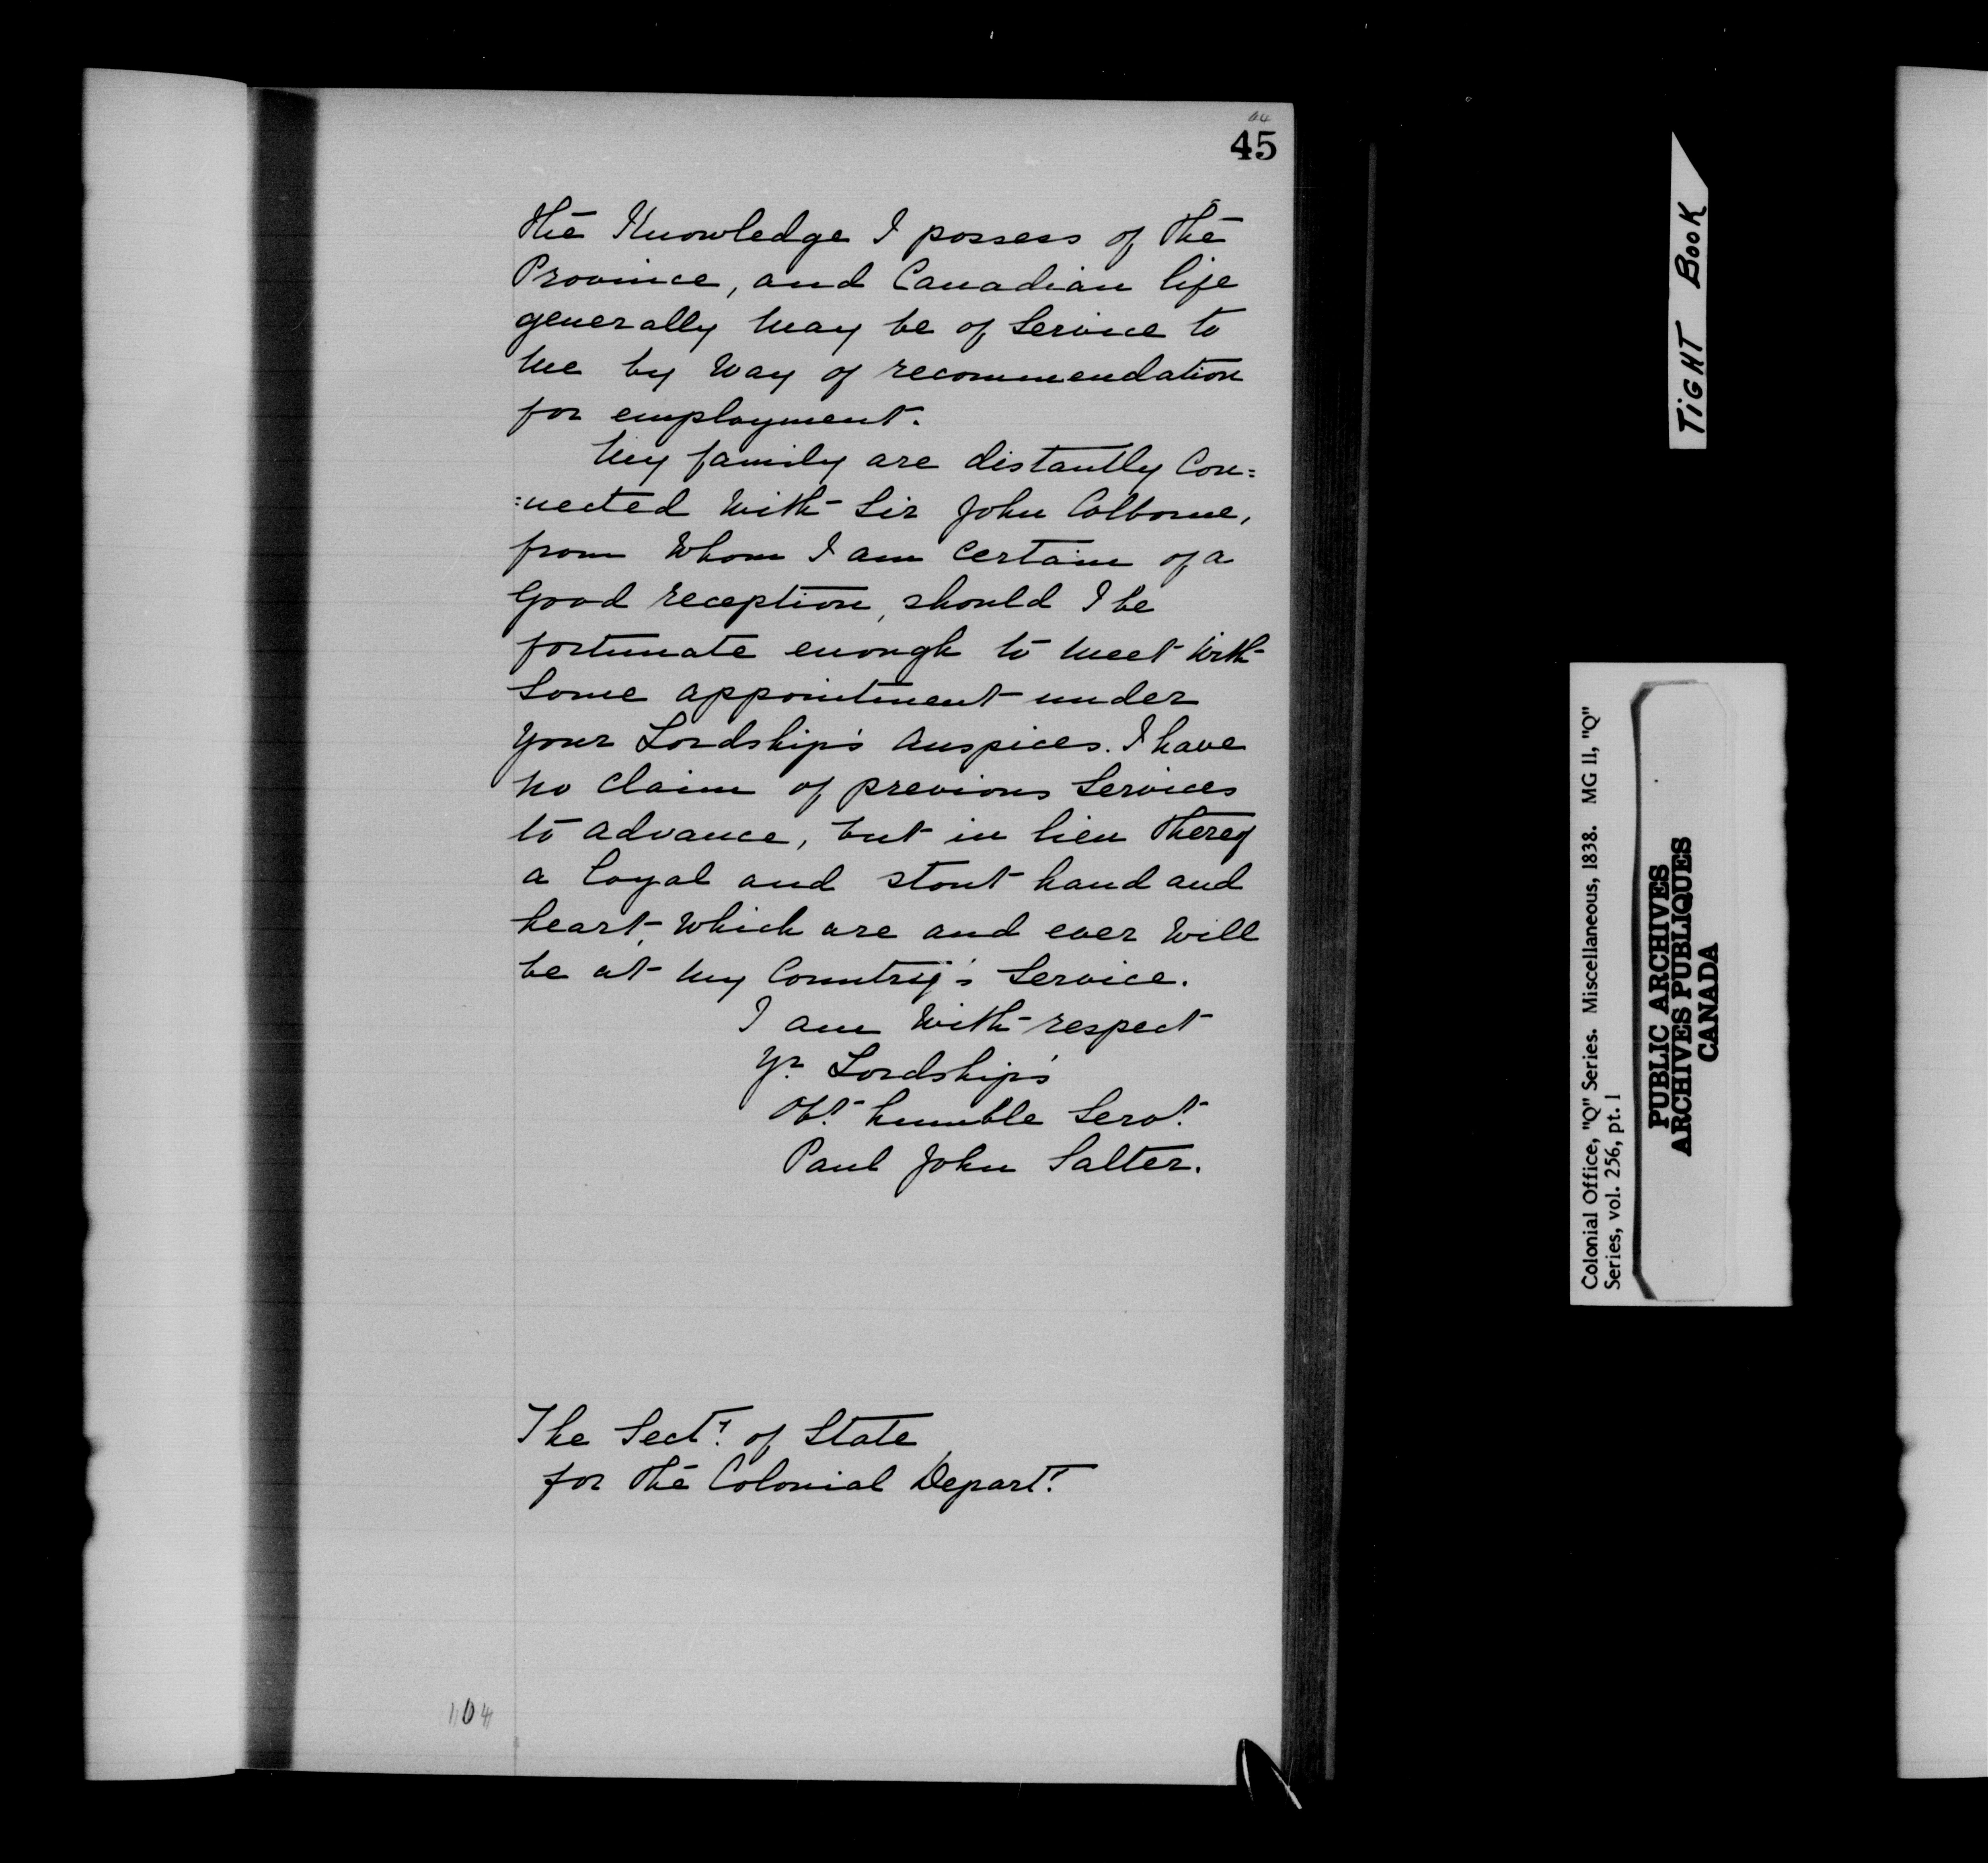 45
the Knowledge I possess of the
Province, and Canadian life
generally may be of Service to
me by Way of recommendation
for employment.
My family are distantly Con=
=nected With Sir John Colborne,
from Whom I am Certain of a
Good reception, should I be
fortunate enough to meet With
Some appointment under
Your Lordship's Auspices. I have
no Claim of previous Services
to advance, but in lieu thereof
a loyal and stout hand and
heart, Which are and ever Will
be at my Country's Service.
I am With respect
Yr. Lordship's
Obt. humble Servt.
Paul John Salter.
The Sect'y. of State
for the Colonial Depart't.
104
TIGHT BOOK
Colonial Office, "Q" Series. Miscellaneous, 1838. MG 11, "Q"
Series, vol. 256, pt. 1
PUBLIC ARCHIVES
ARCHIVES PUBLIQUES
CANADA